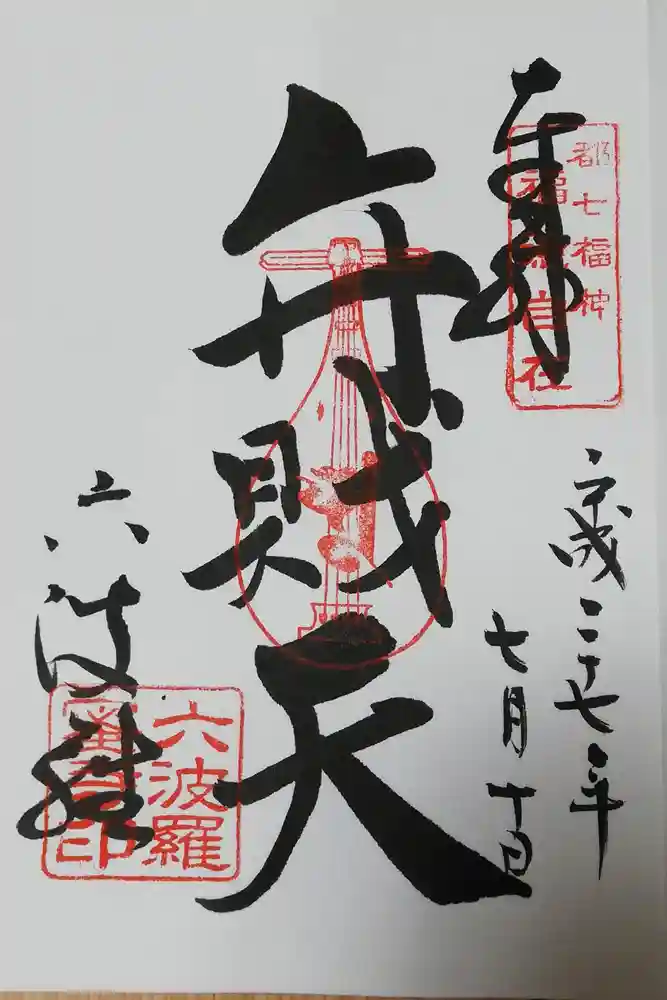 奉拝
都七福神
平成二十七年
七月十日
弁財天
六波羅
六波羅
蜜寺印